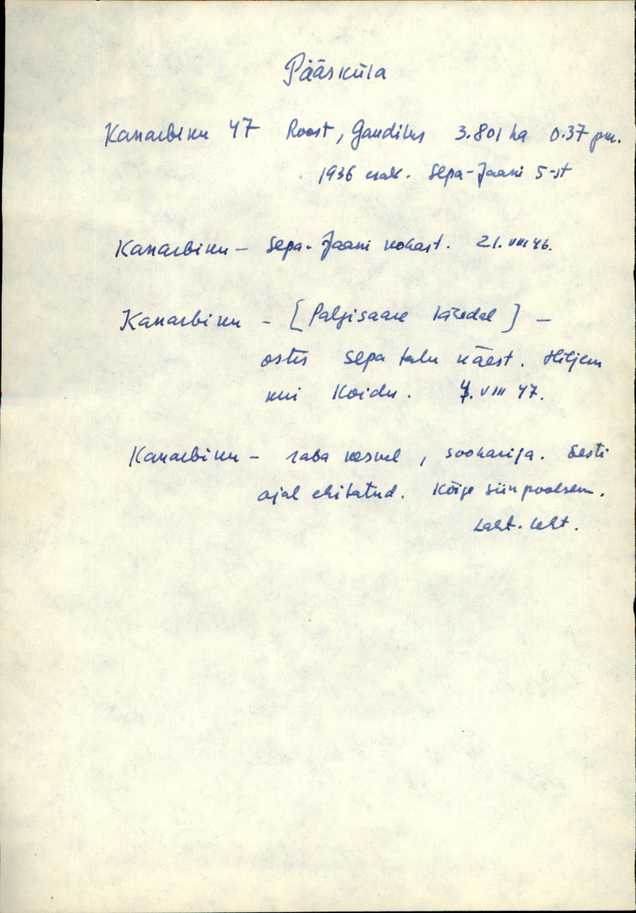 Pääsküla
Kanarbiku 47 Roost, Gaudilus 3.801 ha 0.37 pm.
1936 erak. Sepa-Jaani 5-st
Kanarbiku – Sepa-Jaani kohast. 21. VIII 46.
Kanarbiku – [Palgisaare käredal] –
ostis Sepa talu käest. Hiljem
kui Koidu. 4. VIII 47.
Kanarbiku – raba veerel, sooharija. Eesti
ajal ehitatud. Kõige siinpoolsem.
Laht. leht.